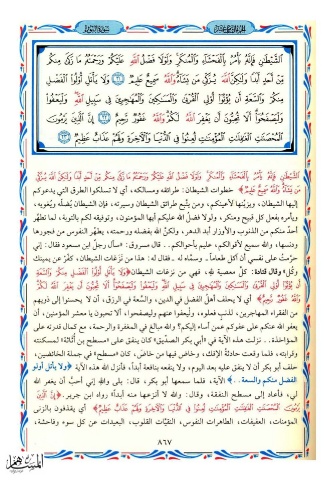 الجزء الثامن عشر
سورة النور
الشَّيْطَٰنِ فَإِنَّهُۥ يَأْمُرُ بِالْفَحْشَآءِ وَالْمُنكَرِ وَلَوْلَا فَضْلُ اللَّهِ عَلَيْكُمْ وَرَحْمَتُهُۥ مَا زَكَىٰ مِنكُم
مِّنْ أَحَدٍ أَبَدًا وَلَٰكِنَّ اللَّهَ يُزَكِّى مَن يَشَآءُ وَاللَّهُ سَمِيعٌ عَلِيمٌ ﴿٢١﴾ وَلَا يَأْتَلِ أُو۟لُوا الْفَضْلِ
مِنكُمْ وَالسَّعَةِ أَن يُؤْتُوٓا أُو۟لِى الْقُرْبَىٰ وَالْمَسَٰكِينَ وَالْمُهَٰجِرِينَ فِى سَبِيلِ اللَّهِ وَلْيَعْفُوا
وَلْيَصْفَحُوٓا أَلَا تُحِبُّونَ أَن يَغْفِرَ اللَّهُ لَكُمْ وَاللَّهُ غَفُورٌ رَّحِيمٌ ﴿٢٢﴾ إِنَّ الَّذِينَ يَرْمُونَ
الْمُحْصَنَٰتِ الْغَٰفِلَٰتِ الْمُؤْمِنَٰتِ لُعِنُوا فِى الدُّنْيَا وَالْءَاخِرَةِ وَلَهُمْ عَذَابٌ عَظِيمٌ ﴿٢٣﴾
الشَّيْطَٰنِ فَإِنَّهُۥ يَأْمُرُ بِالْفَحْشَآءِ وَالْمُنكَرِ وَلَوْلَا فَضْلُ اللَّهِ عَلَيْكُمْ وَرَحْمَتُهُۥ مَا زَكَىٰ مِنكُم مِّنْ أَحَدٍ أَبَدًا وَلَٰكِنَّ اللَّهَ يُزَكِّى
مَن يَشَآءُ وَاللَّهُ سَمِيعٌ عَلِيمٌ﴾ خطوات الشيطان: طرائقه ومسالكه، أي لا تسلكوا الطرق التي يدعوكم
إليها الشيطان، ويزينها لأعينكم، ومن يتَّبع طرائق الشيطان وسيرته، فإن الشيطان يُضله ويُغويه،
ويأمره بفعل كل قبيح ومنكر، ولولا فضلُ الله عليكم أيها المؤمنون، وتوفيقه لكم بالتوبة، لما تطهَّر
أحدٌ منكم من الذنوب والأوزار أبد الدهر، ولكنَّ الله بفضله ورحمته، يطهِّر النفوس من فجورها
ودنسها، والله سميع لأقوالكم، عليم بأحوالكم.. قال مسروق: «سأل رجلٌ ابن مسعود فقال: إني
حرَّمتُ على نفسي أن آكل طعاماً.. وسمَّاه له ـ فقال له: هذا من نَزَغات الشيطان، كفِّر عن يمينك
وكُلْ» وقال قتادة: كلُّ معصية لله، فهي من نزغات الشيطان ﴿وَلَا يَأْتَلِ أُو۟لُوا الْفَضْلِ مِنكُمْ وَالسَّعَةِ
أَن يُؤْتُوٓا أُو۟لِى الْقُرْبَىٰ وَالْمَسَٰكِينَ وَالْمُهَٰجِرِينَ فِى سَبِيلِ اللَّهِ وَلْيَعْفُوا وَلْيَصْفَحُوٓا أَلَا تُحِبُّونَ أَن يَغْفِرَ اللَّهُ لَكُمْ
وَاللَّهُ غَفُورٌ رَّحِيمٌ﴾ أي لا يحلف أهلُ الفضل في الدين، والسَّعة في الرزق، أن لا يحسنوا إلى ذويهم
من الفقراء المهاجرين، لذنبٍ فعلوه، وليعفوا عنهم وليصفحوا، ألا تحبون يا معشر المؤمنين، أن
يعفو الله عنكم على عفوكم عمن أساء إليكم؟ والله مبالغ في المغفرة والرحمة، مع كمال قدرته على
المؤاخذة.. نزلت هذه الآية في «أبي بكر الصدِّيق» كان ينفق على «مسطح بن أُثاثة» لمسكنته
وقرابته، فلما وقعت حادثةُ الإفك، وخاض فيها من خاض، كان «مسطح» في جملة الخائضين،
حلف أبو بكر أن لا ينفق عليه بعد اليوم، ولا ينفعه بنافعة أبداً، فأنزل الله هذه الآية ﴿ولا يأتل أولو
الفضل منكم والسعة..﴾ الآية، فلما سمعها أبو بكر، قال: بلى والله إني أحبُّ أن يغفر الله
لي، فأعاد إلى مسطح النفقة، وقال: والله لا أنزعها منه أبداً» رواه ابن جرير. ﴿إِنَّ الَّذِينَ
يَرْمُونَ الْمُحْصَنَٰتِ الْغَٰفِلَٰتِ الْمُؤْمِنَٰتِ لُعِنُوا فِى الدُّنْيَا وَالْءَاخِرَةِ وَلَهُمْ عَذَابٌ عَظِيمٌ﴾ أي يقذفون بالزنى
المؤمنات، العفيفات، الطاهرات النفوس، النقيَّات القلوب، البعيدات عن كل سوء وفاحشة،
٨٦٧